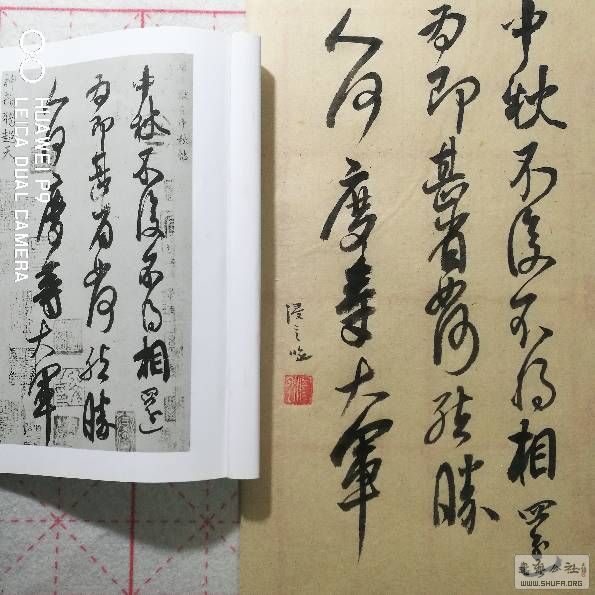 HUAWEI P9
LEICA DUAL CAMERA
中秋不復不得相還
為即甚省如何然勝
人何慶等大軍
中秋不復不得相還
為即甚省如何然勝
人何慶等大軍
WWW.SHUFA.ORG